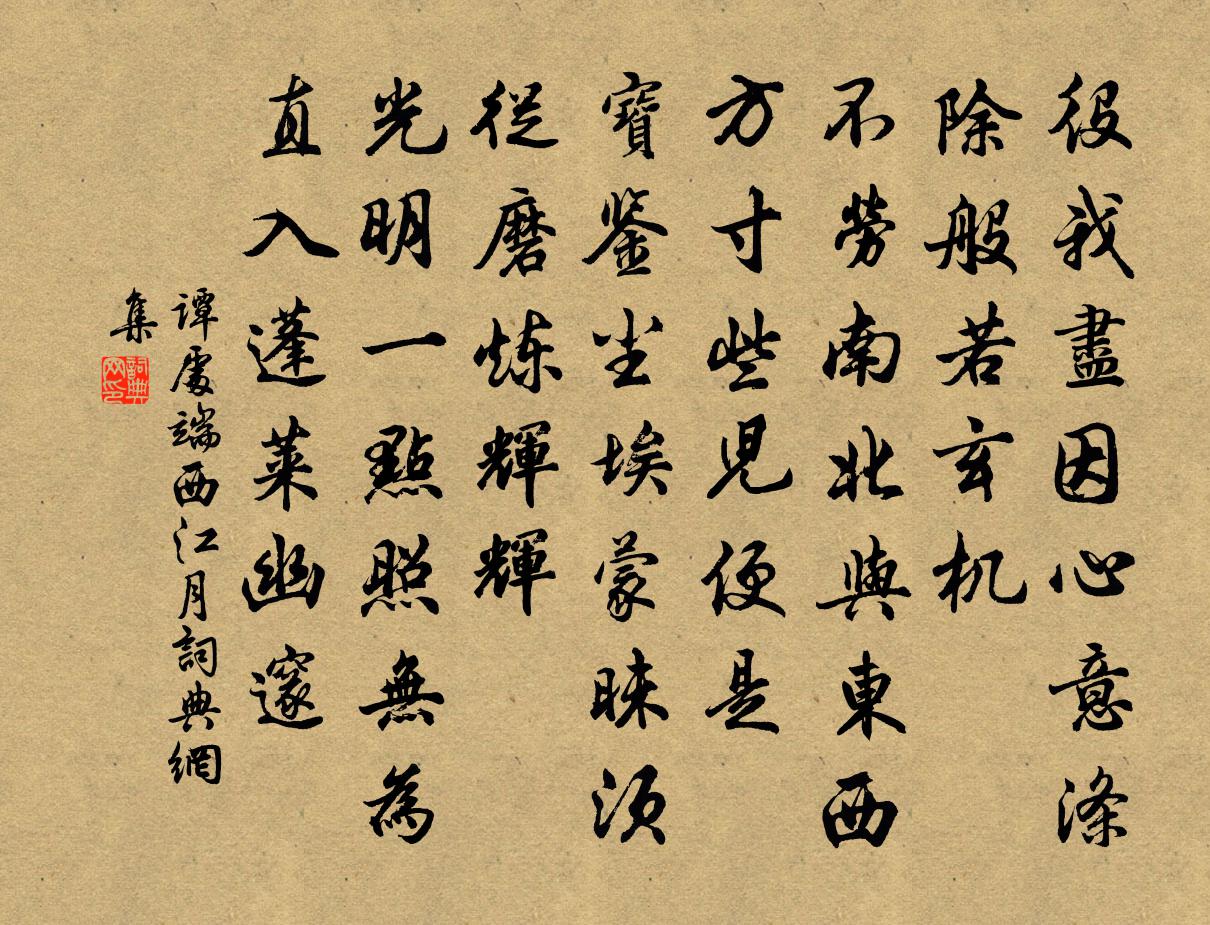 役我盡因心意滌
除般若玄机
不勞南北與東西
方寸些児便是
寶鉴尘埃蒙昧須
從磨炼輝輝
光明一點照無為
直入蓬莱幽邃
谭處端西江月詞典網
集
詞典網印